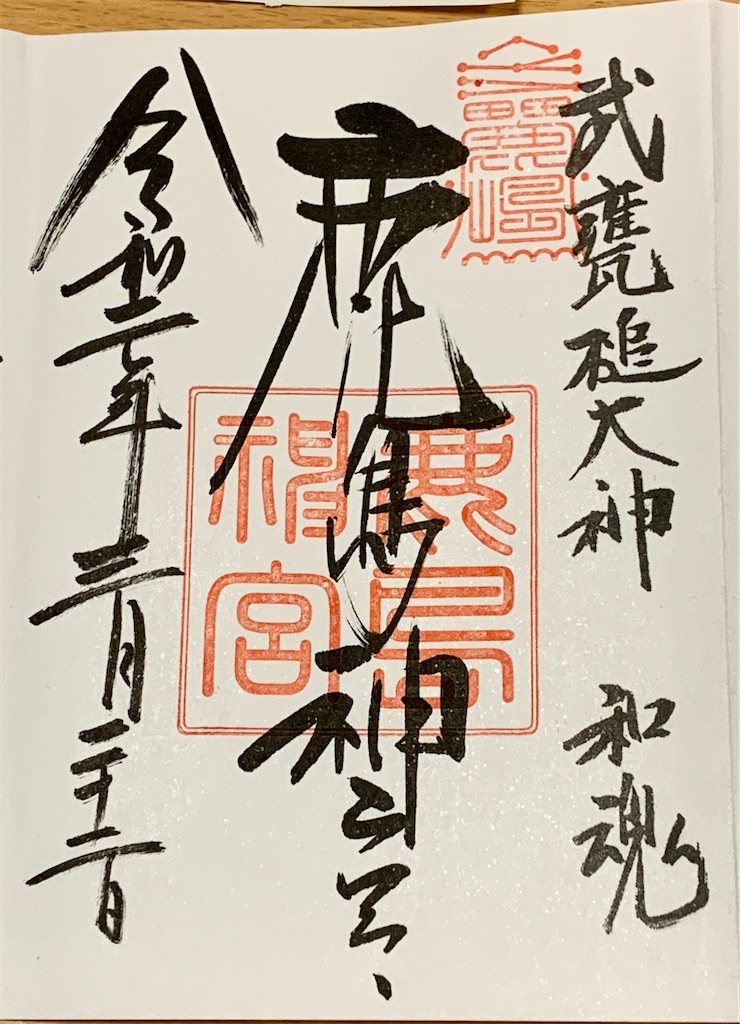 武甕槌大神 和魂
鹿島神宮
鹿島神宮
令和二年三月二十二日